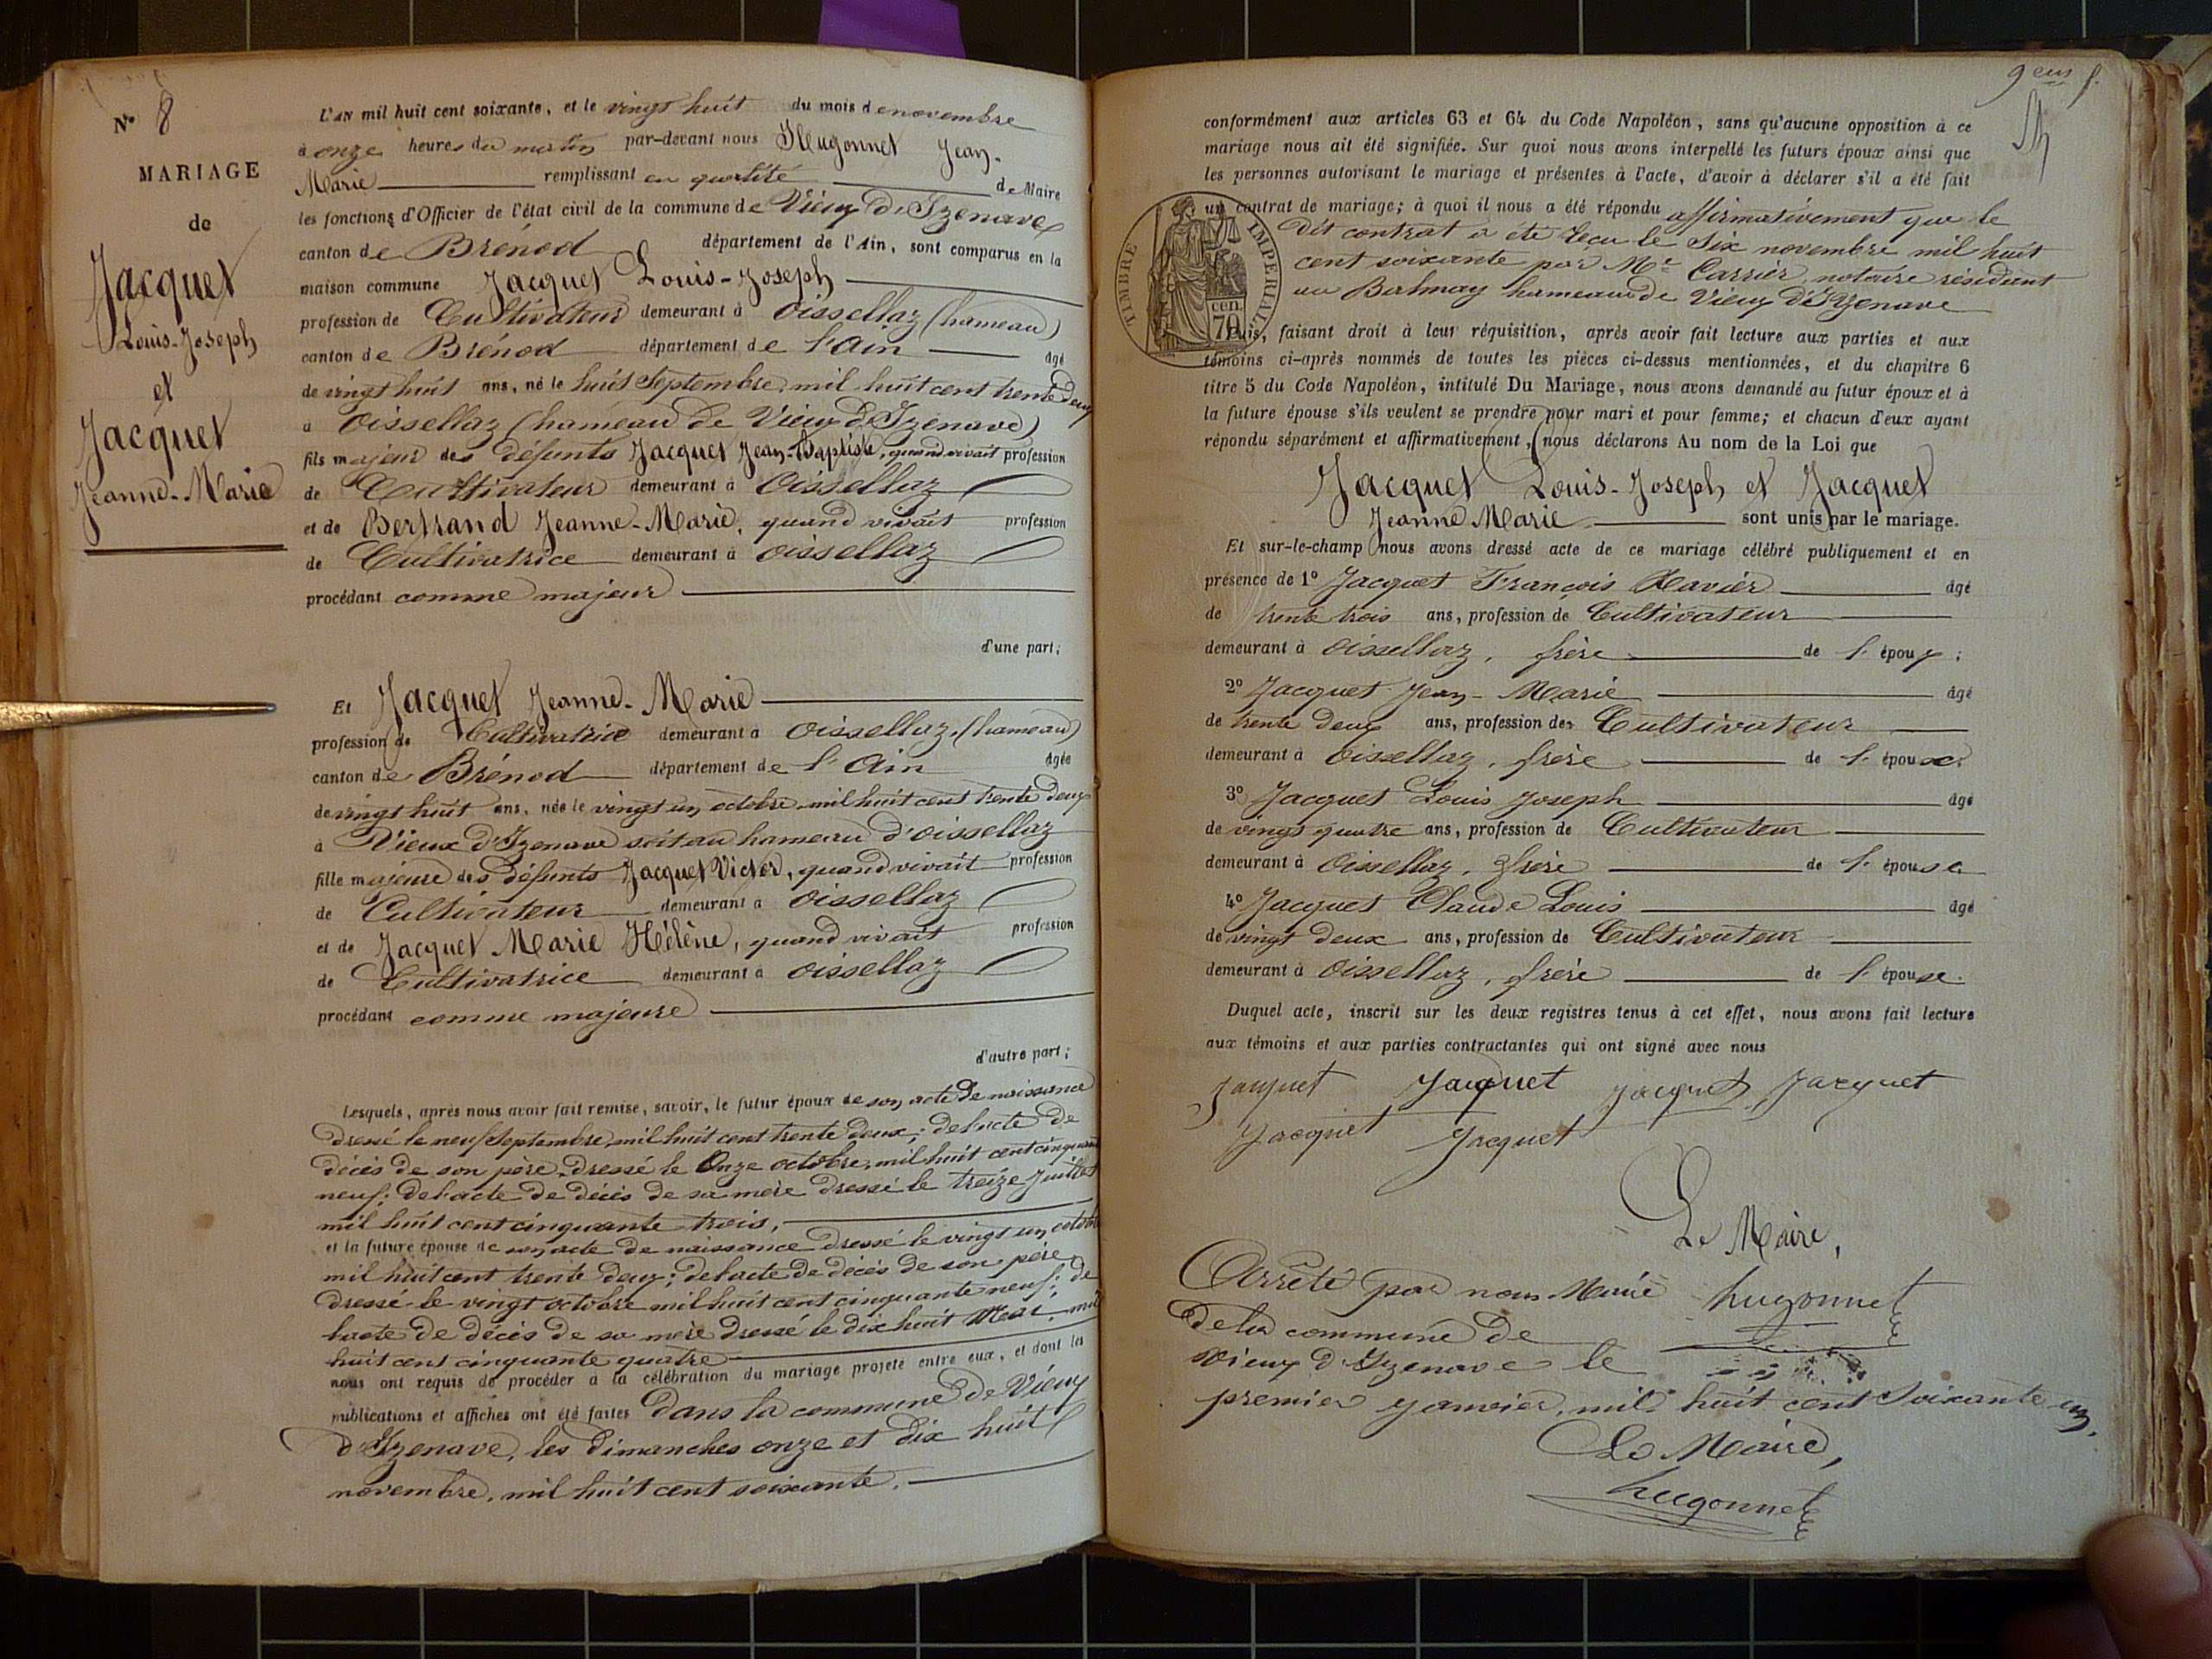 N° 8
MARIAGE
de
Jacquet
Louis-Joseph
et
Jacquet
Jeanne-Marie
L'AN mil huit cent soixante, et le vingt huit du mois de novembre
à onze heures du matin par-devant nous Hugonnet Jean-
Marie remplissant en qualité de Maire
les fonctions d'Officier de l'état civil de la commune de Vieux D'Izenave
canton de Brénod département de l'Ain, sont comparus en la
maison commune Jacquet Louis-Joseph
profession de Cultivateur demeurant à Oissellaz (hameau)
canton de Brénod département de l'Ain âgé
de vingt huit ans, né le huit Septembre mil huit cent trente deux
à Oissellaz (hameau de Vieux D'Izenave)
fils majeur des défunts Jacquet Jean-Baptiste, quand vivait profession
de Cultivateur demeurant à Oissellaz
et de Bertrand Jeanne-Marie, quand vivait profession
de Cultivatrice demeurant à Oissellaz
procédant comme majeur
d'une part;
Et Jacquet Jeanne-Marie
profession de Cultivatrice demeurant à Oissellaz (hameau)
canton de Brénod département de l'Ain âgée
de vingt huit ans, née le vingt un octobre mil huit cent trente deux
à Vieux d'Izenave soit au hameau d'Oissellaz
fille majeure des défunts Jacquet Victor, quand vivait profession
de Cultivateur demeurant à Oissellaz
et de Jacquet Marie Hélène, quand vivait profession
de Cultivatrice demeurant à Oissellaz
procédant comme majeure
d'autre part;
Lesquels, après nous avoir fait remise, savoir, le futur époux de son acte de naissance
dressé le neuf Septembre mil huit cent trente deux; de l'acte de
décès de son père dressé le Onze octobre mil huit cent cinquante
neuf; de l'acte de décès de sa mère dressé le treize Juillet
mil huit cent cinquante trois,
et la future épouse de son acte de naissance dressé le vingt un octobre
mil huit cent trente deux; de l'acte de décès de son père
dressé le vingt octobre mil huit cent cinquante neuf; de
l'acte de décès de sa mère dressé le dix huit Mai mil
huit cent cinquante quatre
nous ont requis de procéder à la célébration du mariage projeté entre eux, et dont les
publications et affiches ont été faites dans la commune de Vieux
d'Izenave, les dimanches onze et dix huit
novembre, mil huit cent soixante.
conformément aux articles 63 et 64 du Code Napoléon, sans qu'aucune opposition à ce
mariage nous ait été signifiée. Sur quoi nous avons interpellé les futurs époux ainsi que
les personnes autorisant le mariage et présentes à l'acte, d'avoir à déclarer s'il a été fait
un contrat de mariage; à quoi il nous a été répondu affirmativement que le
dit contrat a été reçu le Six novembre mil huit
cent soixante par Me Carrier notaire résidant
au Balmay hameau de Vieux d'Izenave
TIMBRE IMPERIAL
cen. 70
Puis, faisant droit à leur réquisition, après avoir fait lecture aux parties et aux
témoins ci-après nommés de toutes les pièces ci-dessus mentionnées, et du chapitre 6
titre 5 du Code Napoléon, intitulé Du Mariage, nous avons demandé au futur époux et à
la future épouse s'ils veulent se prendre pour mari et pour femme; et chacun d'eux ayant
répondu séparément et affirmativement, nous déclarons Au nom de la Loi que
Jacquet Louis-Joseph et Jacquet
Jeanne Marie sont unis par le mariage.
Et sur-le-champ nous avons dressé acte de ce mariage célébré publiquement et en
présence de 1° Jacquet François Xavier âgé
de trente trois ans, profession de Cultivateur
demeurant à Oissellaz, frère de l'époux;
2° Jacquet Jean-Marie âgé
de trente deux ans, profession de Cultivateur
demeurant à Oissellaz, frère de l'épouse;
3° Jacquet Louis Joseph âgé
de vingt quatre ans, profession de Cultivateur
demeurant à Oissellaz, frère de l'épouse
4° Jacquet Claude Louis âgé
de vingt deux ans, profession de Cultivateur
demeurant à Oissellaz, frère de l'épouse.
Duquel acte, inscrit sur les deux registres tenus à cet effet, nous avons fait lecture
aux témoins et aux parties contractantes qui ont signé avec nous
Jacquet Jacquet Jacquet Jacquet
Jacquet Jacquet
Le Maire,
Arrêté par nous Maire hugonnet
de la commune de
Vieux d'Izenave le
premier janvier, mil huit cent Soixante un.
Le Maire,
hugonnet